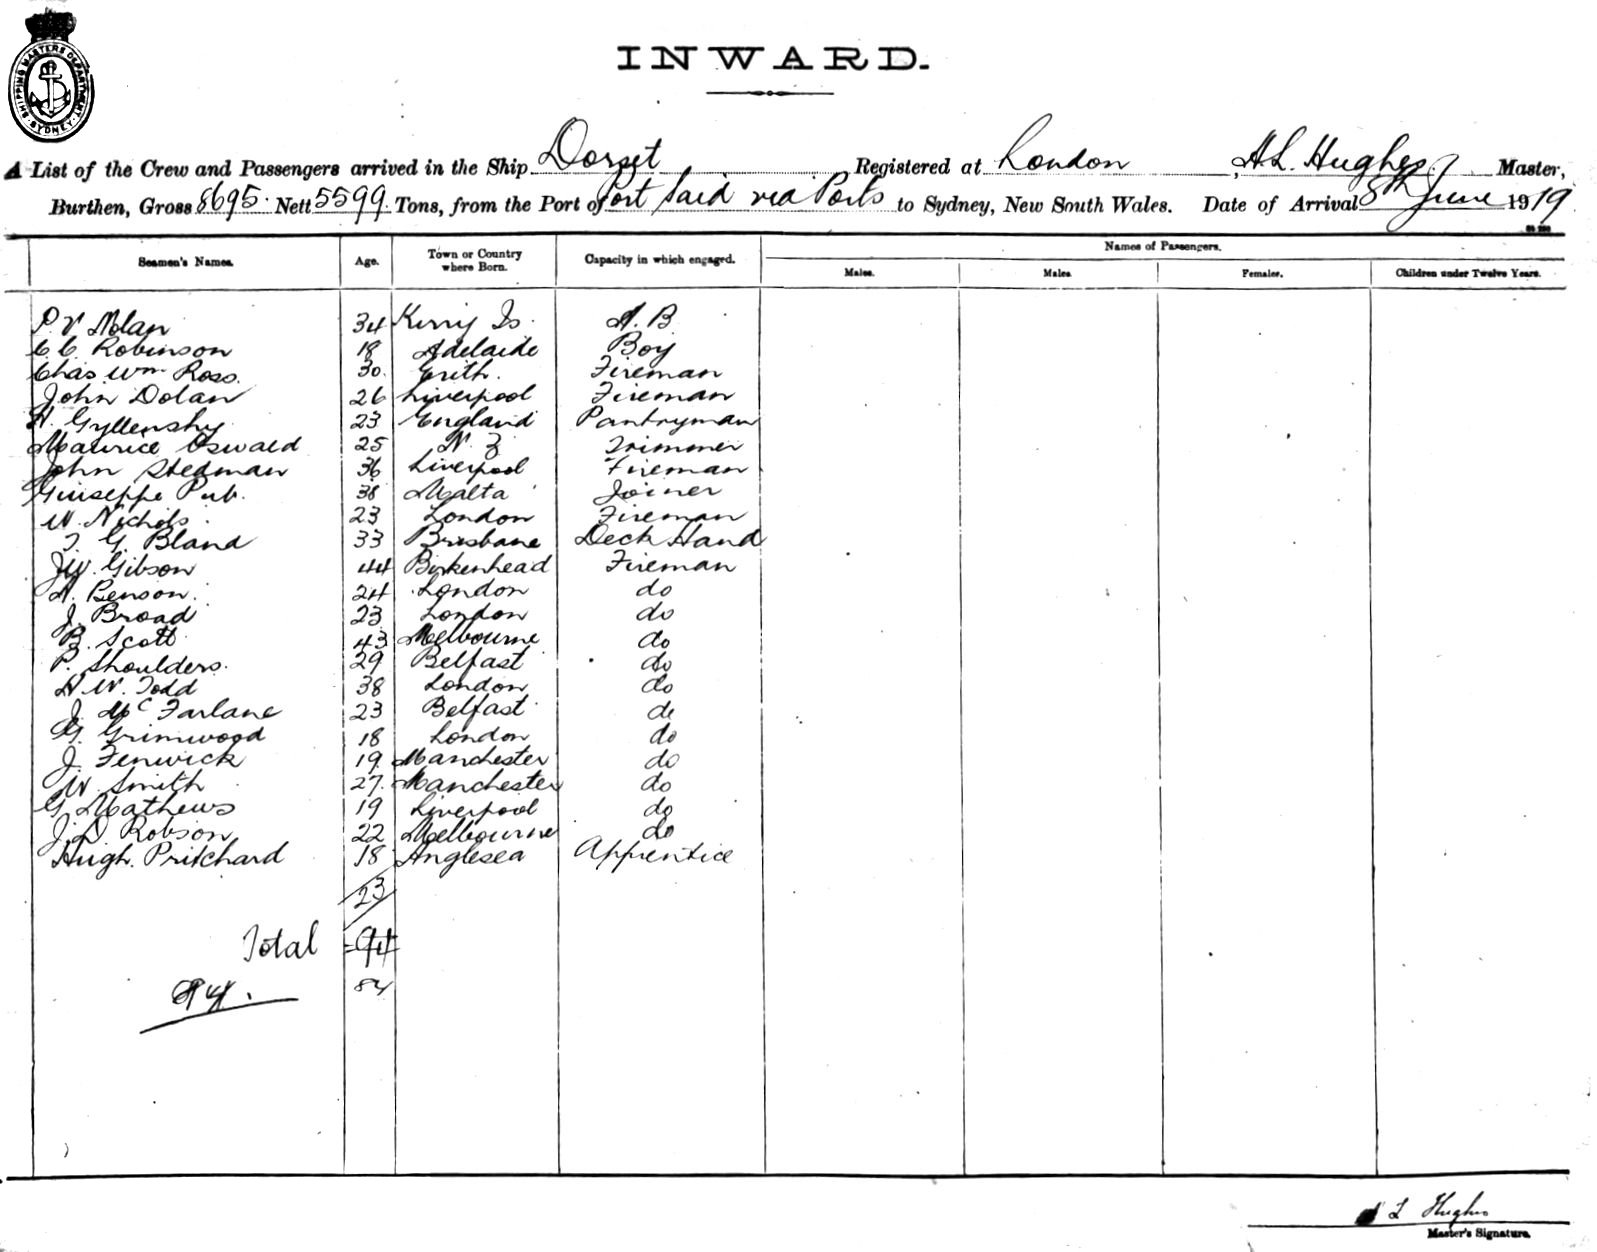 SHIPPING MASTERS DEPARTMENT
SYDNEY
INWARD.
A List of the Crew and Passengers arrived in the Ship Dorset Registered at London, H.L. Hughes, Master,
Burthen, Gross 8695. Nett 5599. Tons, from the Port of Port Said via Ports to Sydney, New South Wales. Date of Arrival 8th June 1919
Names of Passengers.
Seamen's Names. Age. Town or Country where Born. Capacity in which engaged. Males. Males. Females. Children under Twelve Years.
P. V. Nolan 34 Kerry Is. A. B
C. C. Robinson 18 Adelaide Boy
Chas. Wm Ross. 30. Erith. Fireman
John Dolan 26 Liverpool Fireman
H. Gyllenshy 23 England Pantryman
Maurice Oswald 25 N. Z Trimmer
John Stedman 36 Liverpool Fireman
Giuseppe Pub. 38 Malta Joiner
W. Nichols 23 London Fireman
J. G. Bland 33 Brisbane Deck Hand
J.W. Gibson 44 Birkenhead Fireman
H. Benson. 24 London do
J. Broad 23 London do
B. Scott 43 Melbourne do
P. Shoulders. 29 Belfast do
H. W. Todd 38 London do
J. McFarlane 23 Belfast do
G. Grimwood 18 London do
J. Fenwick 19 Manchester do
W. Smith 27. Manchester do
G. Mathews 19 Liverpool do
J. D Robson 22 Melbourne do
Hugh. Pritchard 18 Anglesea Apprentice
23
Total 94
84
H L Hughes
Master's Signature.